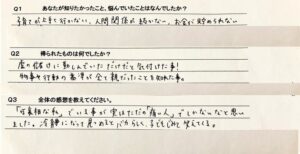 Q1 あなたが知りたかったこと、悩んでいたことはなんでしたか?
子育てが上手く行かない、人間関係が続かない、お金が貯められない
Q2 得られたものは何でしたか?
虚の保けに勤しんでいただけだと気付けた事!
物事や行動の基準が全て親だったことを知れた事。
Q3 全体の感想を教えてください。
「可哀相な私」でいる事が実はただの「痛い人」でしかないなと思い
ました。冷静になって見つめるとバカらしく、子どもじみて笑えてくる。